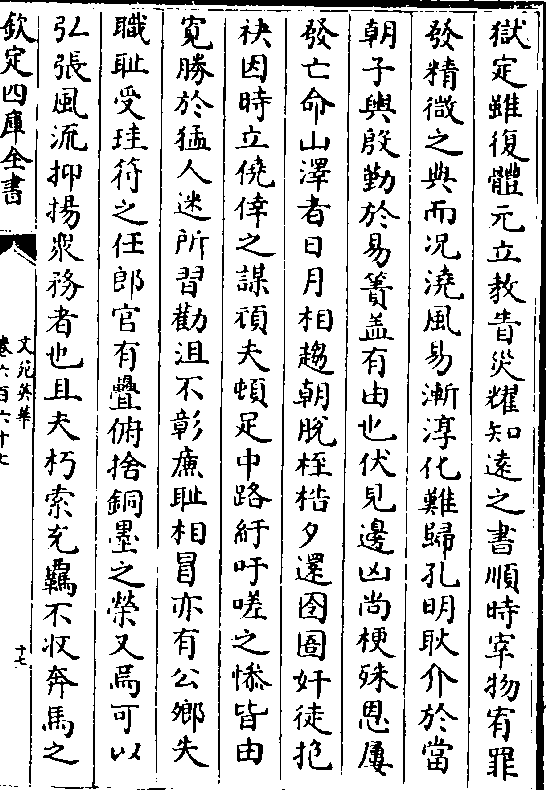 獄定雖復體元立教眚災耀知遠之書順時宰物宥罪
發精微之典而况澆風易漸淳化難歸孔明耿介於當
朝子輿殷勤於易簀盖有由也伏見邊凶尚梗殊恩屢
發亡命山澤者日月相趨朝脫桎梏夕還囹圄奸徒抱
袂因時立僥倖之謀頑夫頓足中路紆吁嗟之慘皆由
寛勝於猛人迷所習勸沮不彰㢘耻相冒亦有公鄉失
職耻受珪符之任郎官有疊俯捨銅墨之榮又焉可以
弘張風流抑揚衆務者也且夫朽索充羈不收奔馬之
欽定四庫全書
文苑英華
卷六百六十七
十七